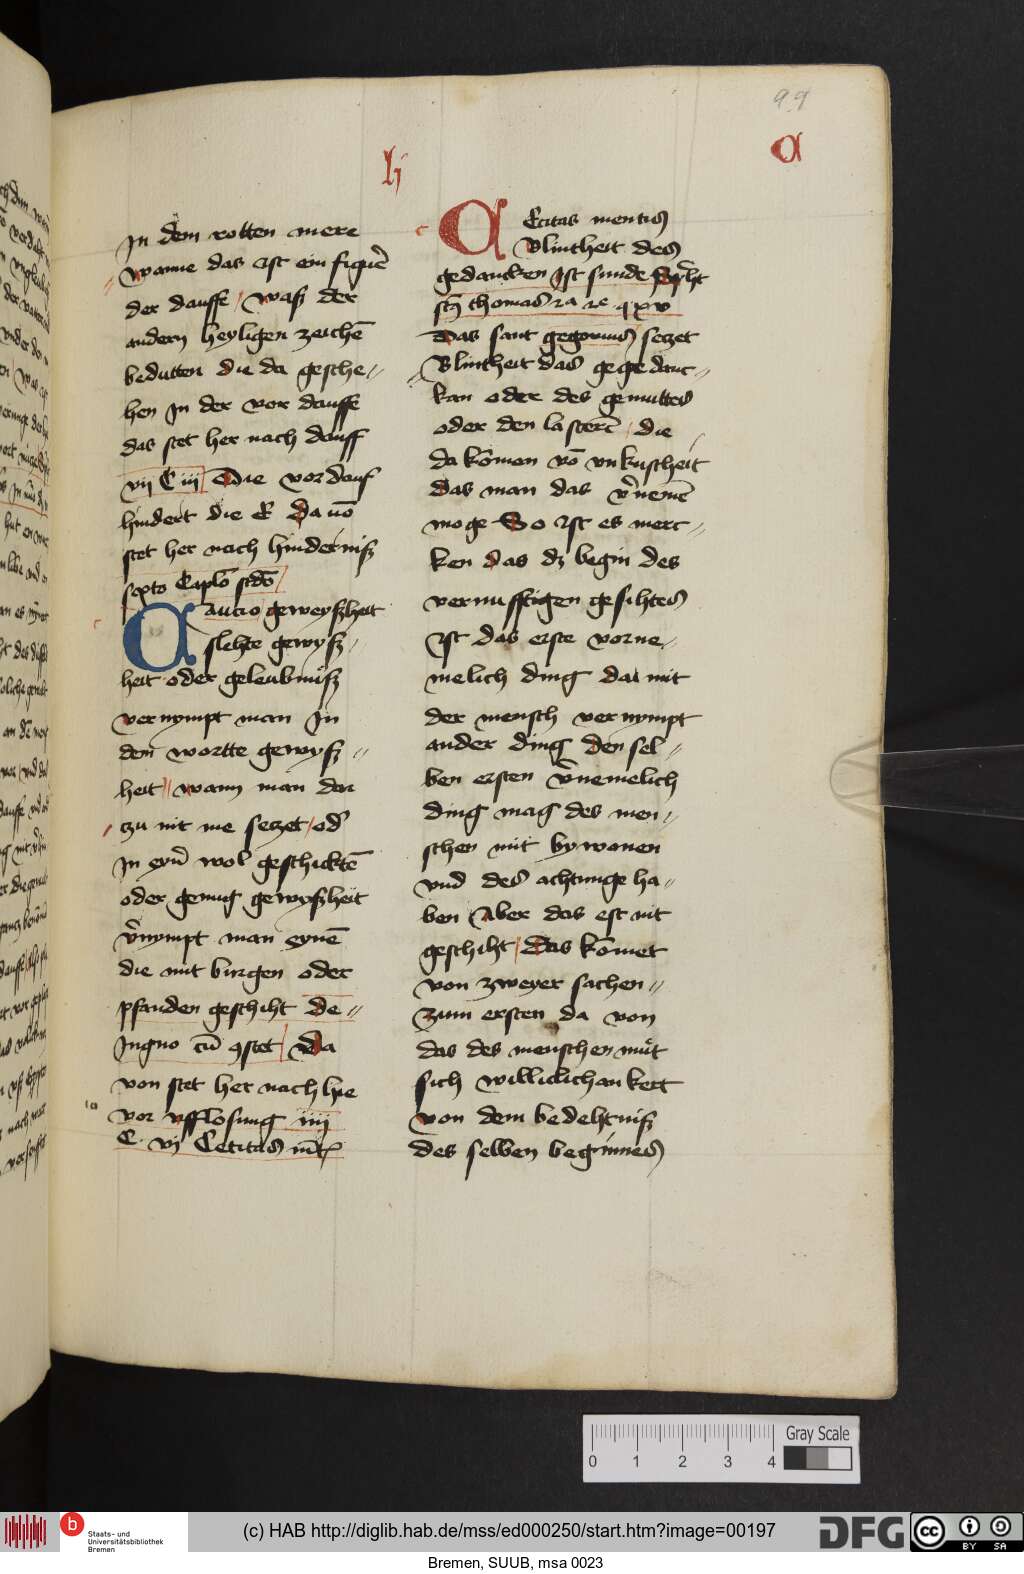 99
lj
C
Jn dem rotten mere
wanne das ist ein figuͤr
der dauffe / waß der
andern heyligen zeichē
bedutten die da gesche〃
hen Jn der vor dauffe
das stet her nach dauff
vij C iij Die vor dauf
hindert die E Da vō
stet her nach hinderniß
sexto Caplo
Caucio geweyßheit
slehte gewyß〃
heit oder geleubniß
vernympt man Jn
dem wortte gewyß〃
heit〃 wann man dar
zu nit me setzet / od
Jn eyn wol geschicktē
oder genug gewyßheit
v̄nympt man eynē
die mit burgen oder
pfanden geschiht de〃
Jngno cū 9stet / Da
von stet her nach hie
vor vfflosung iiij
C vj Cecitas mēt
CEcitas mentis
Blintheit des
gedancken Jst sunde spricht
thomas 2a 2e q xv
Das sant gregorius setzet
Blintheit das gegedanc〃
kan oder des gemuttes
oder den lasterē / die
da komen vō vnkuscheit
das man das v̄nemē
moge So ist es merc〃
ken das dz begin des
vernufftigen gesihtes
ist das erste vorne〃
melich ding da mit
der mensch vernympt
ander ding den sel〃
ben ersten v̄nemelich
ding mag des men〃
schen mit bywanen
vnd des achtunge ha〃
ben Aber das est nit
geschiht / das komet
von zweyer sachen〃
zum ersten da von
das des menschen muͦt
sich williclich an kert
von dem bedehtniß
des selben beginnes
0 1 2 3 4
Gray Scale
b
Staats- und
Universitätsbibliothek
Bremen
(c) HAB http://diglib.hab.de/mss/ed000250/start.htm?image=00197
DFG
cc
BY SA
Bremen, SUUB, msa 0023